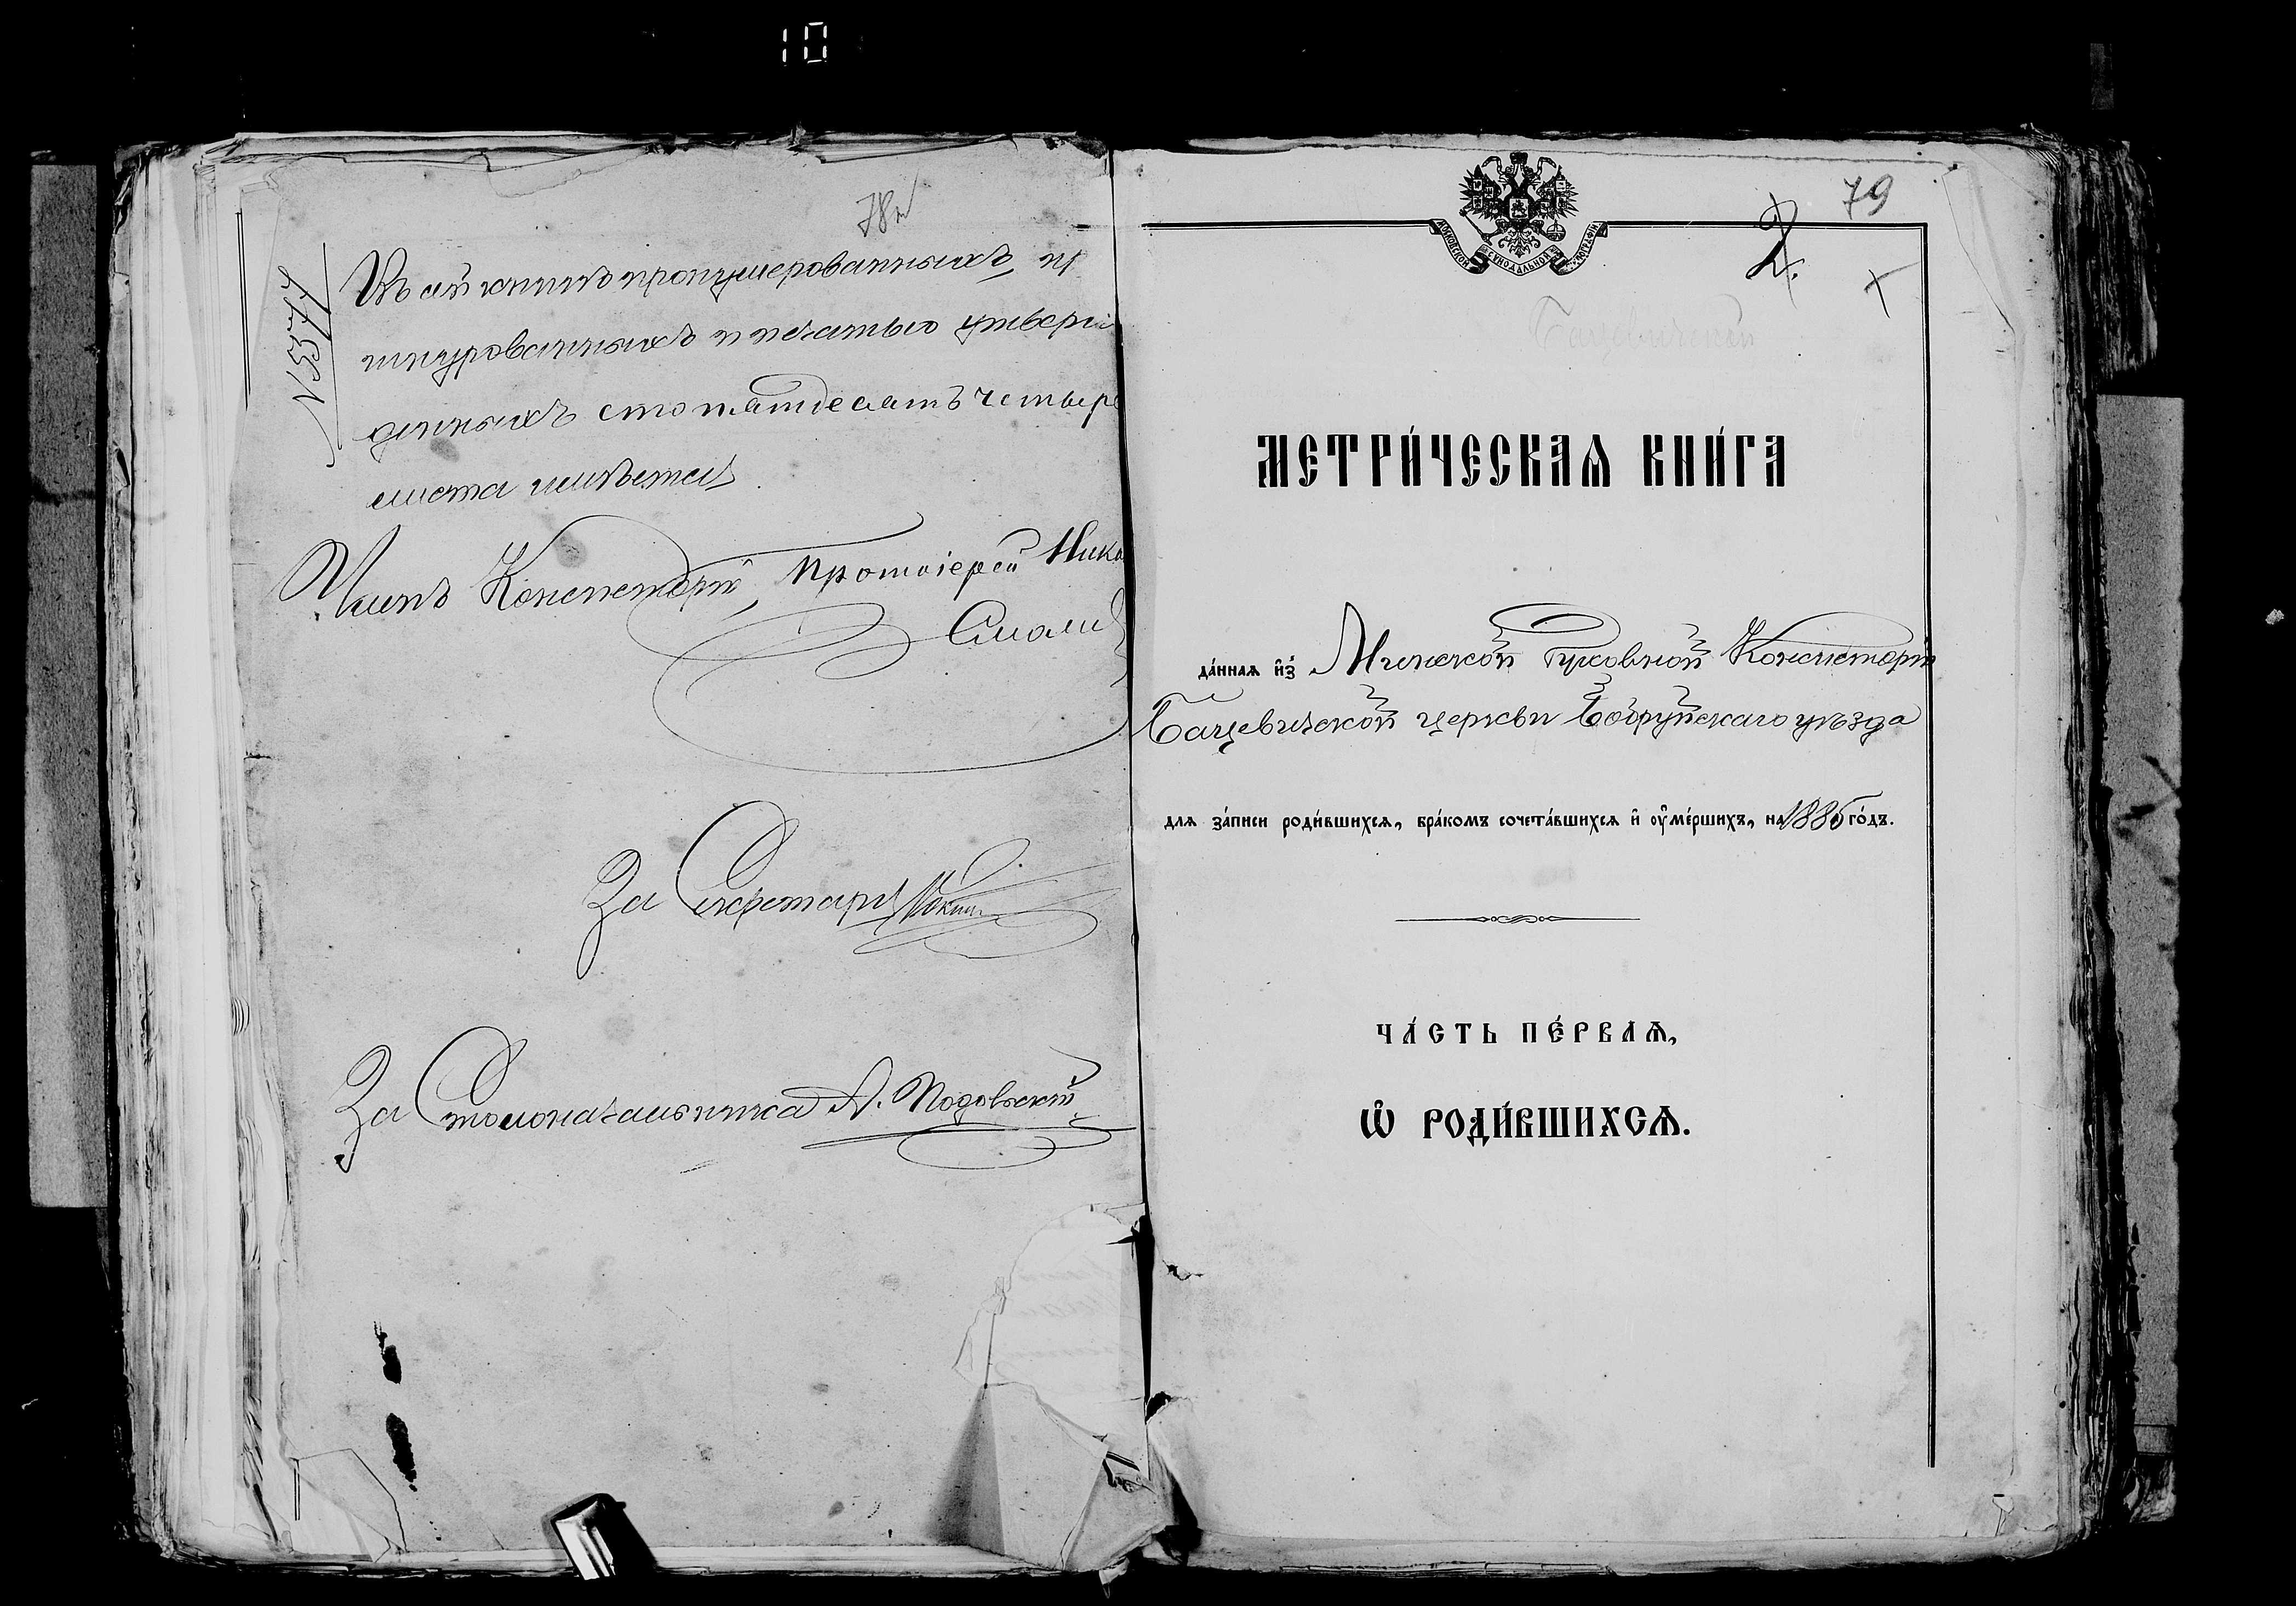 10
78об
N 5577
Въ сей книгѣ пронумерованныхъ, и
шнурованныхъ и печатью утверж
денныхъ сто пятдесятъ четыре
листа имѣется
Членъ Консисторіи, Протоіерей Нико
Смоли
За Секретаря
За Столоначальника А.
79
2.
МОСКОВСКОЙ СѴНОДАЛЬНОЙ ТѴПОГРАФІИ
Бацевичской
МЕТРИ́ЧЕСКАѦ КНИ́ГА
да́ннаѧ и҆з̾ Минской Духовной Консисторіи
Бацевичской церкви Бобруйскаго уѣзда
для за́писи роди́вшихсѧ, бра́комъ сочета́вшихсѧ и҆ ᲂу҆ме́ршихъ, на 1885 го́дъ.
ЧА́СТЬ ПЕ́РВАѦ,
Ѽ РОДИ́ВШИХСѦ.